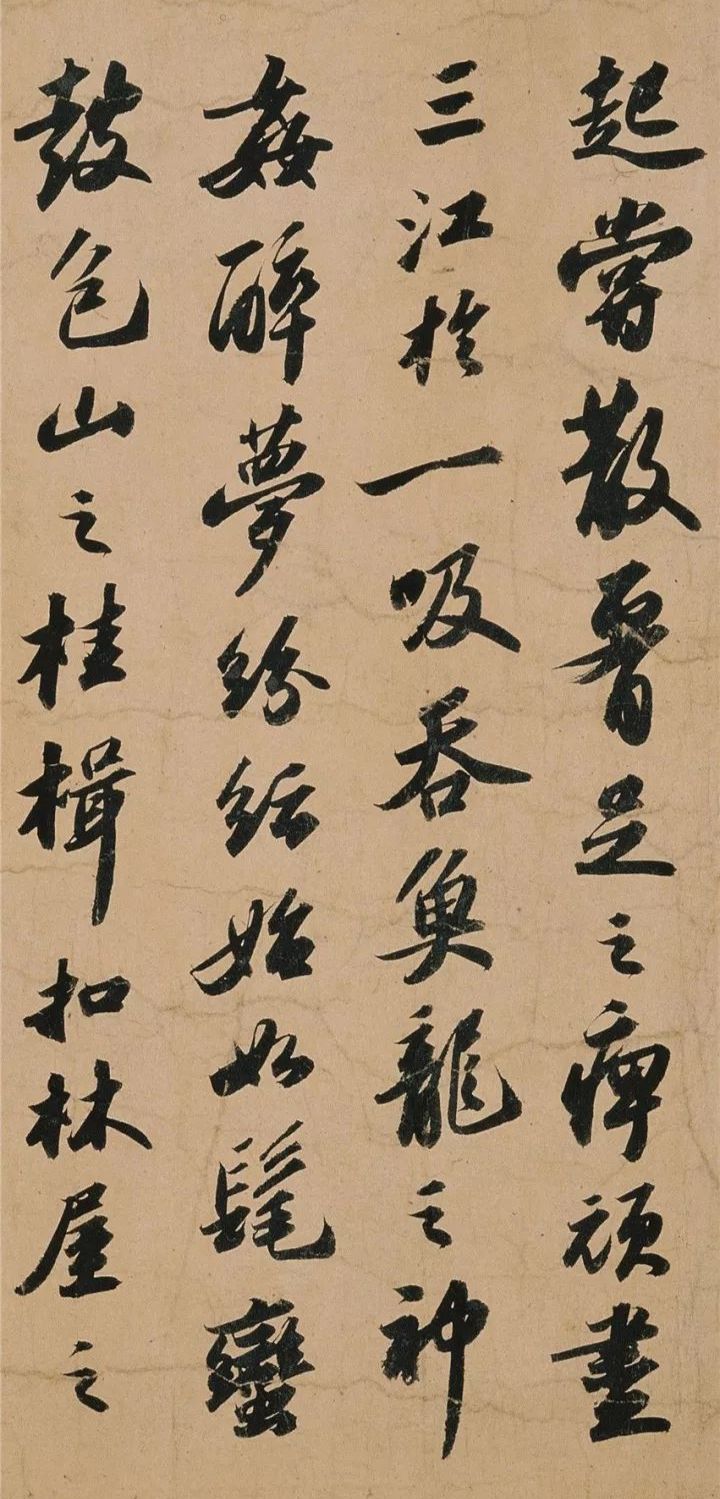 起嘗散腰足之痺頑盡
三江於一吸吞魚龍之神
姦醉夢紛紜始如髦蠻
鼓包山之桂楫扣林屋之